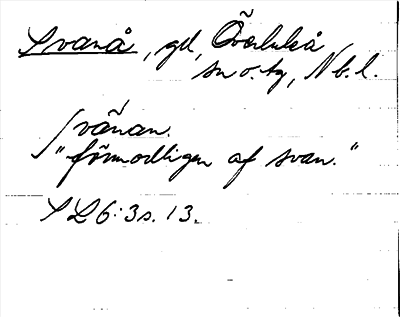 Svanå, gd, Överluleå
sn o. tg, Nb. l.
Svånan.
"förmodligen af svan."
SL 6:3 s. 13.